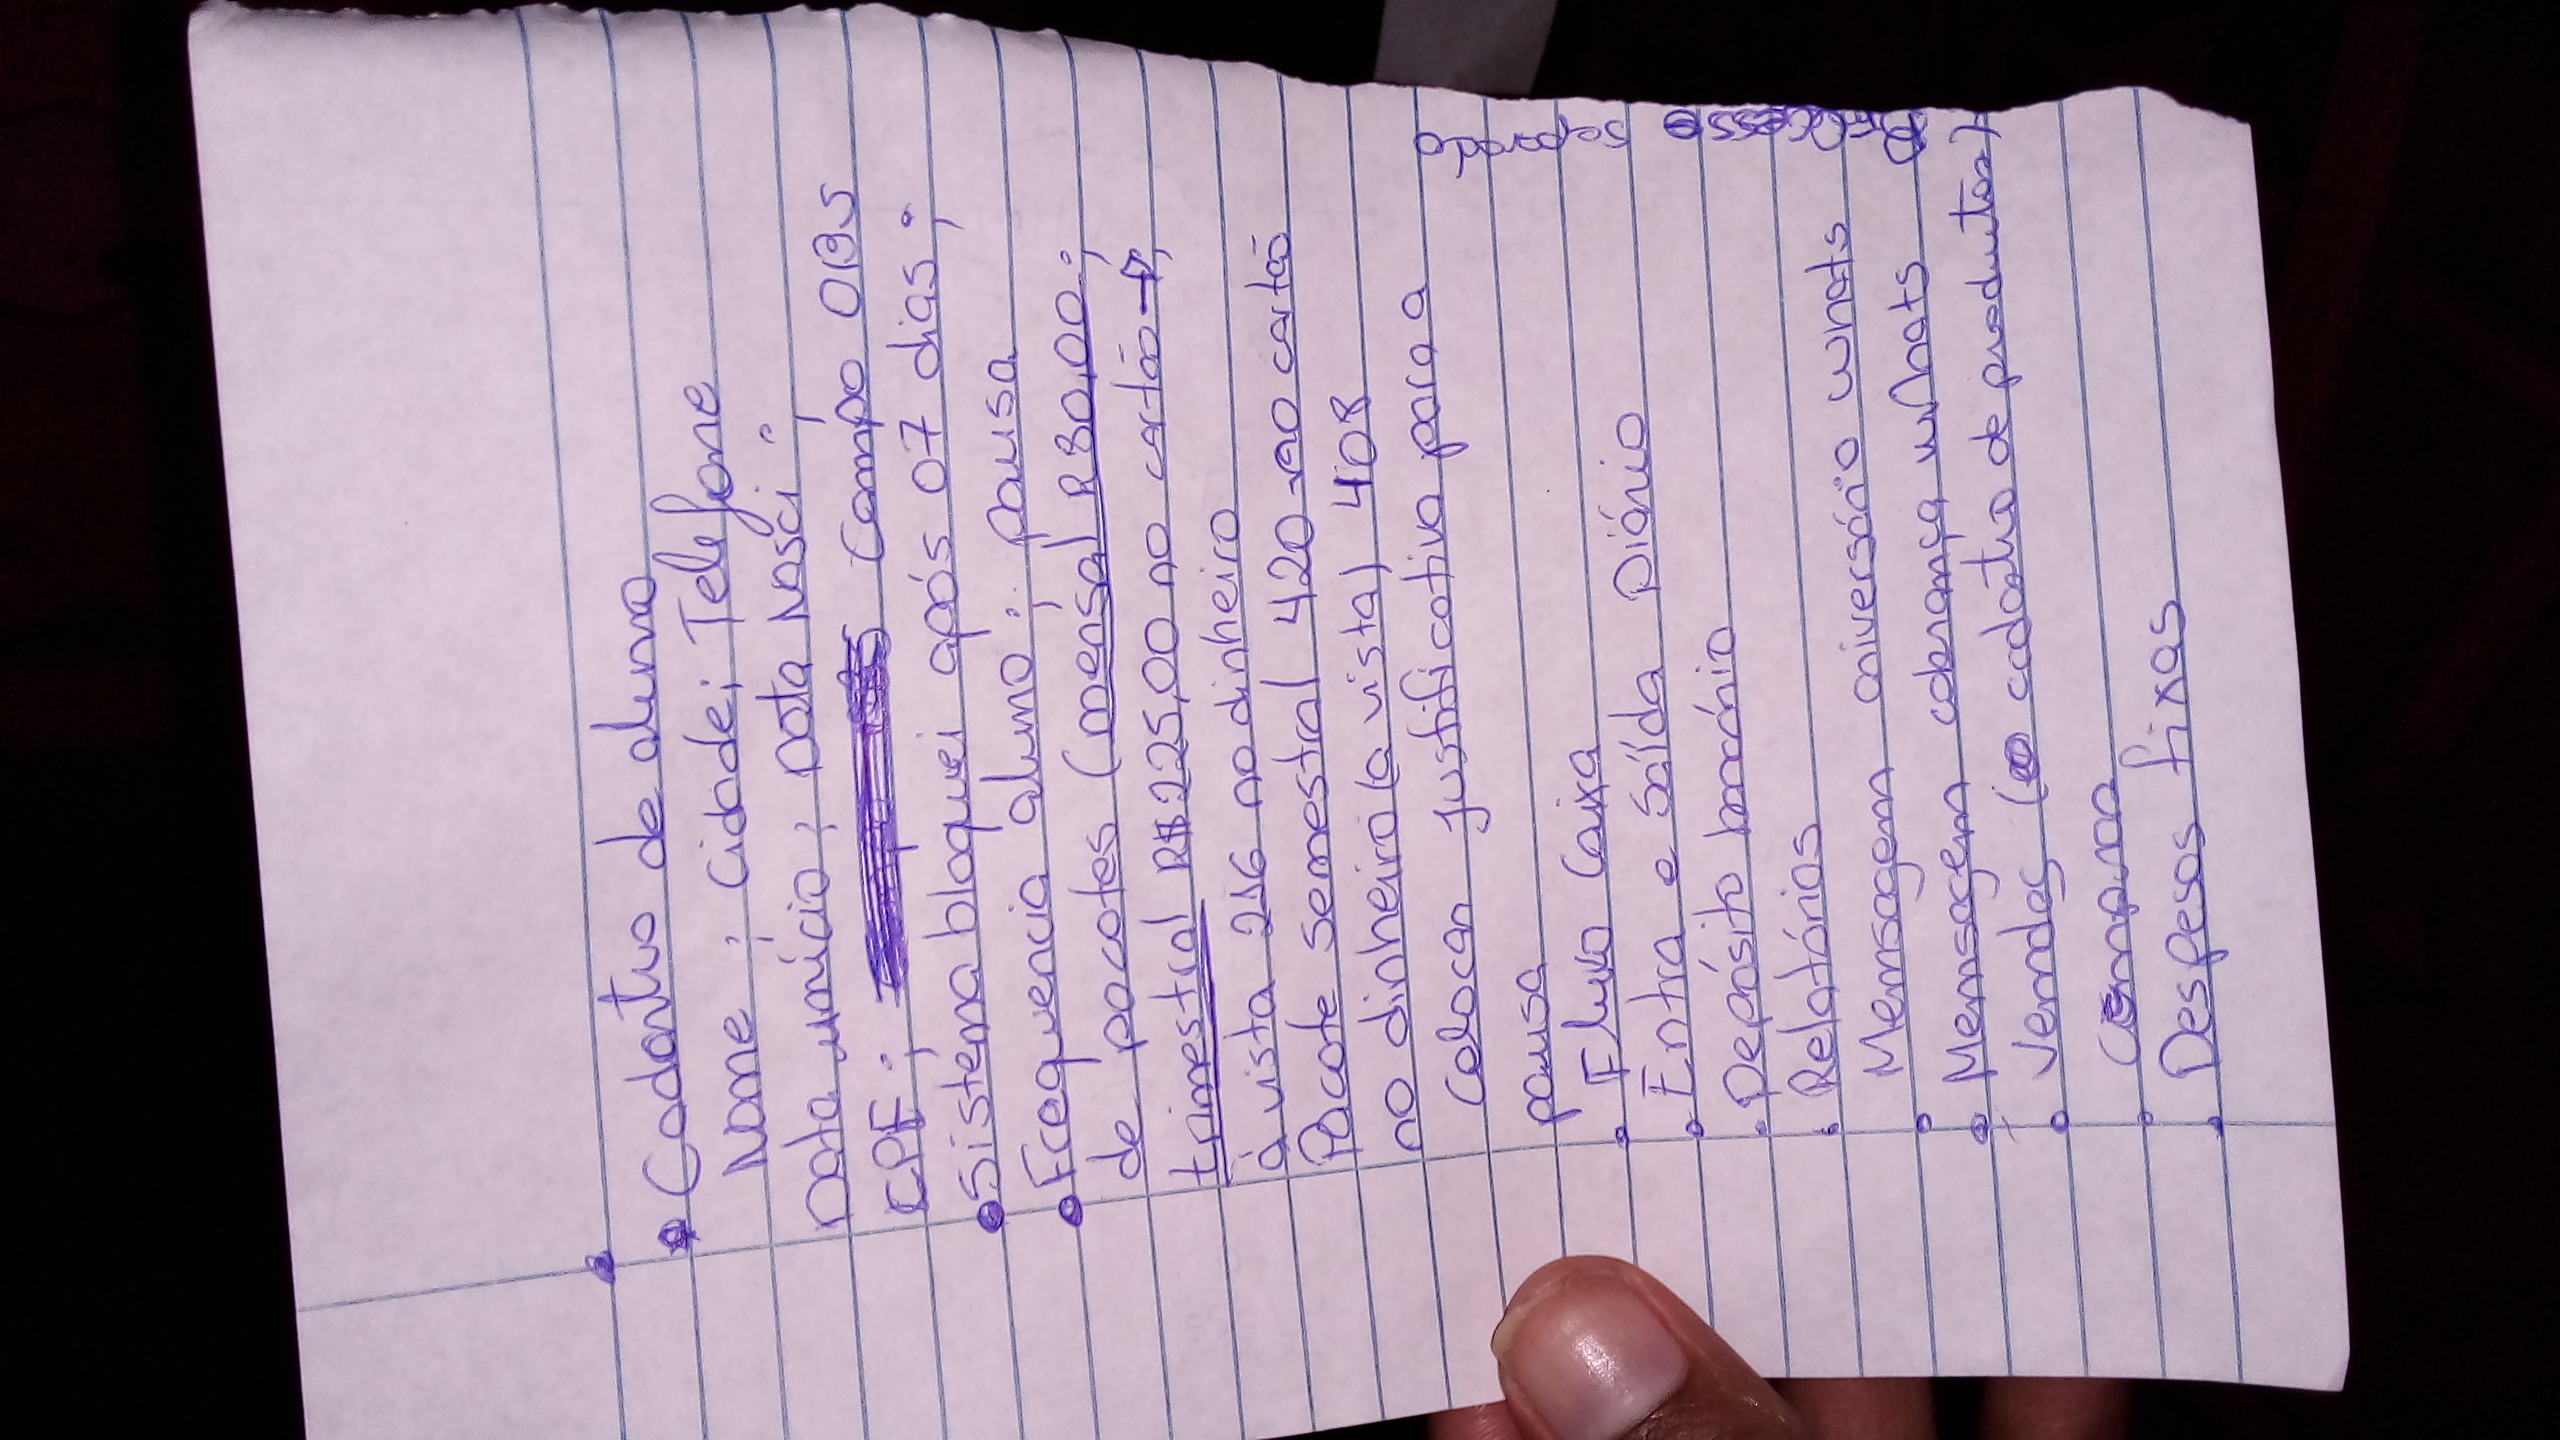 Cadastro de aluno
Nome ; Cidade; Telefone
Data início ; Data Nasci ;
CPF ; Campo OBS
Sistema bloquei após 07 dias ;
Frequencia aluno ; pausa
de pacotes (mensal R80,00 ;
trimestral R$225,00 no cartão → ;
à vista 216 no dinheiro
Pacote semestral 420 no cartão
no dinheiro (a vista) 408
Colocar justificativa para a
pausa
Fluxo Caixa
Entra e Saída Diário
Depósito bancário
Relatórios
Mensagem aniversário whats
Mensagem cobrança whats
Vendas ( cadastro de productos)
Compras
Despesas fixas
separado